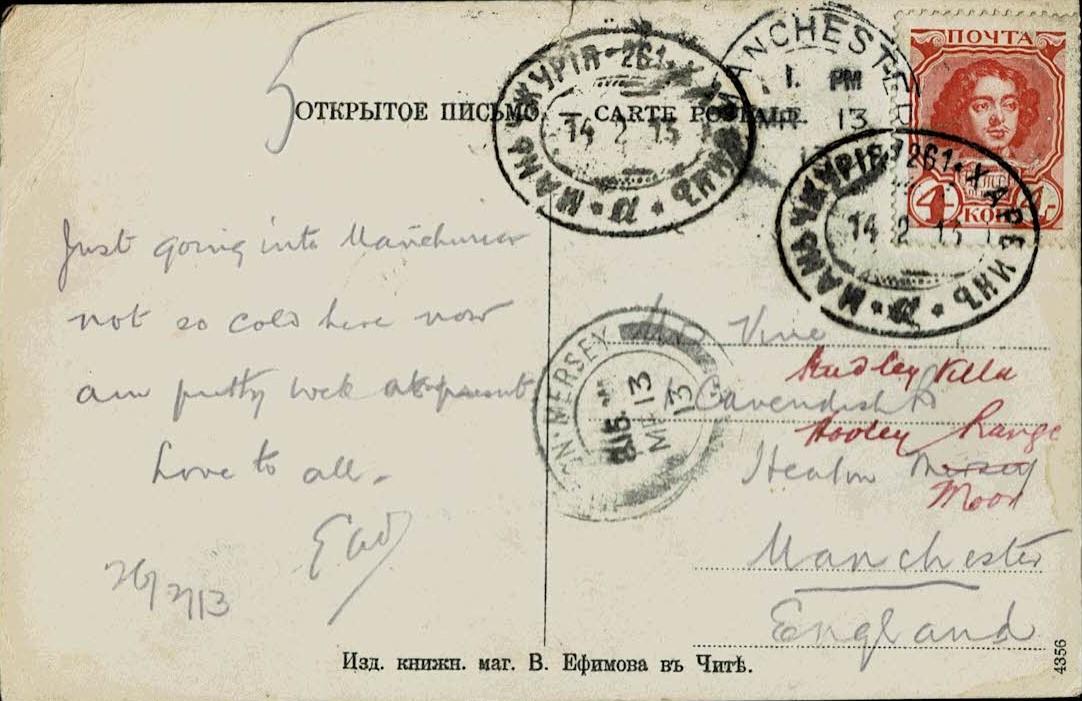 5
ОТКРЫТОЕ ПИСЬМО. — CARTE POSTALE.
МАНЧЖУРІЯ - 261 * ХАРБИНЪ
14 2 13
MANCHESTER
1. PM
13
ПОЧТА
4 КОП 4
МАНЧЖУРІЯ 261 * ХАРБИНЪ
14 2 13
Just going into Manchuria
not so cold here now
am pretty well at present
Love to all -
26/2/13
N-MERSEY
8 15
MR 13
13
Vine
Studley Villa
Cavendish Rd
Hooley Range
Heaton Mersey
Moor
Manchester
England
Изд. книжн. маг. В. Ефимова въ Читѣ.
4356